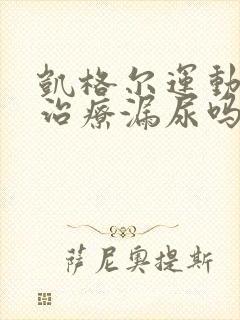 凱格尔運動
治療漏尿吗
萨尼奥提斯